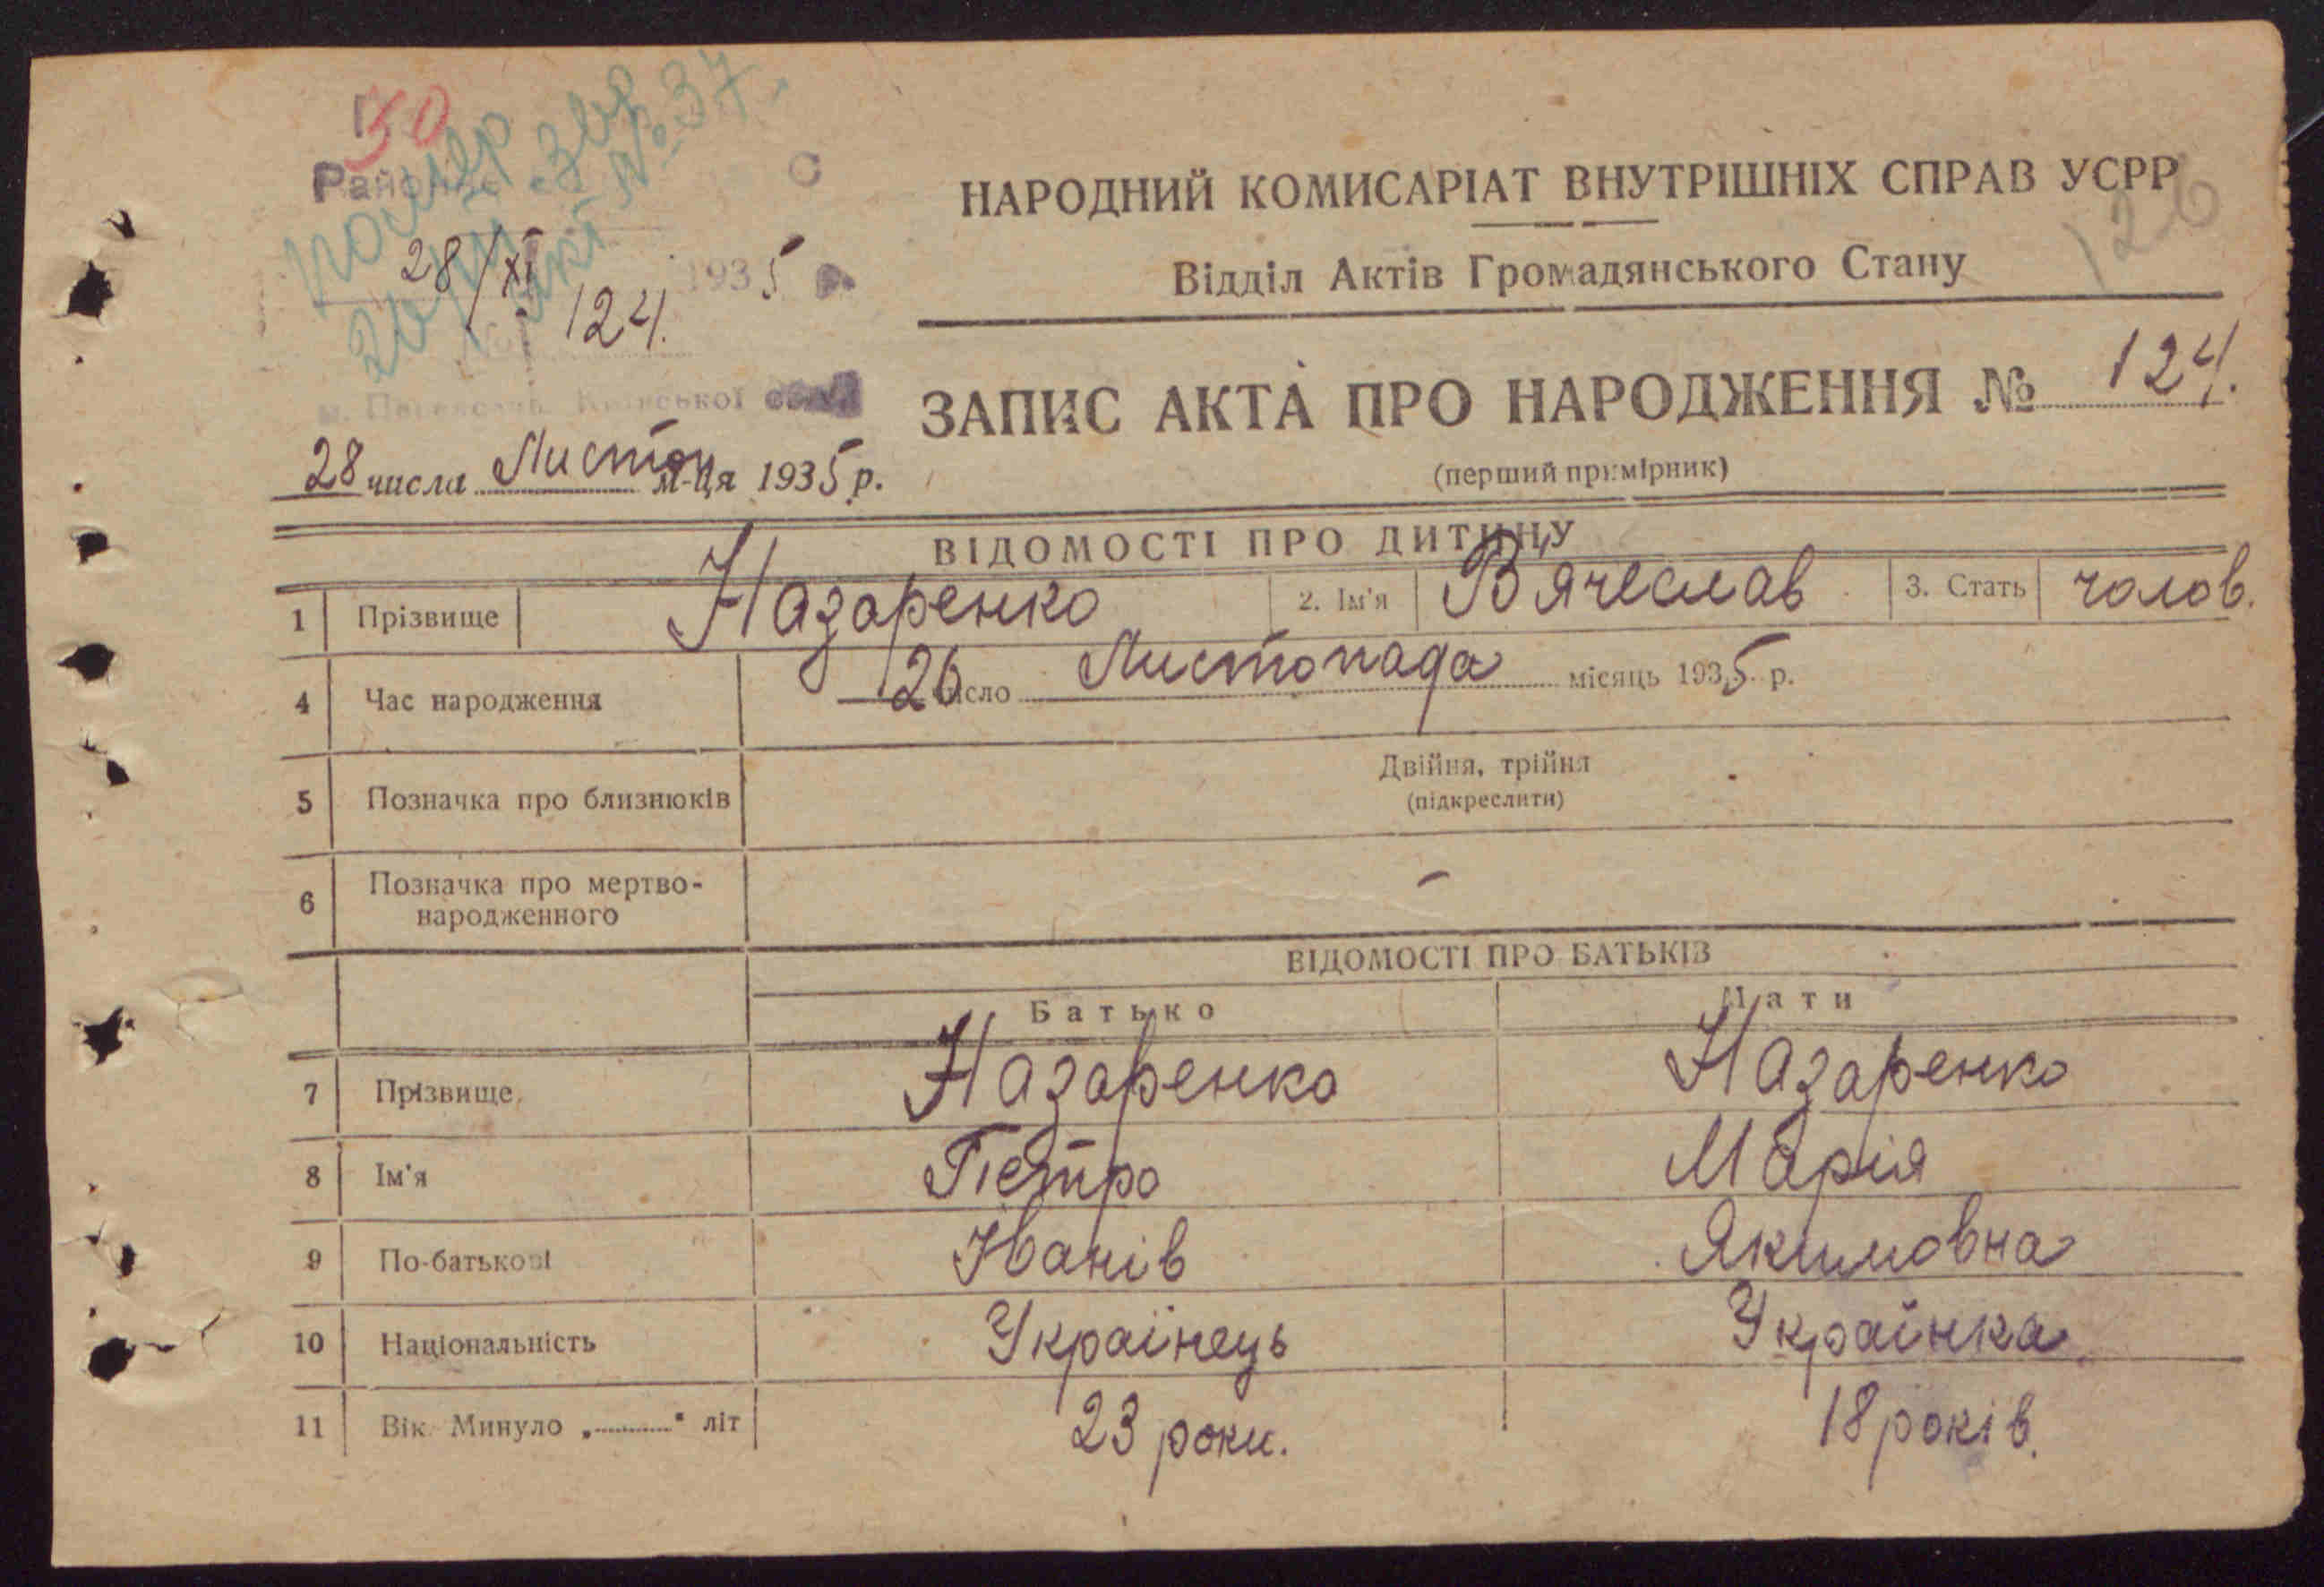 50
помер
Районне
28/XI 1935 р.
124.
№ 37.
м. Переяслав Київської обл.
28 числа Листоп м-ця 1935 р.
НАРОДНИЙ КОМИСАРІАТ ВНУТРІШНІХ СПРАВ УСРР
126
Відділ Актів Громадянського Стану
ЗАПИС АКТА ПРО НАРОДЖЕННЯ № 124.
(перший примірник)
ВІДОМОСТІ ПРО ДИТИНУ
1 Прізвище Назаренко 2. Ім'я В'ячеслав 3. Стать чолов.
4 Час народження 26 число Листопада місяць 1935 р.
5 Позначка про близнюків Двійня, трійня
(підкреслити)
6 Позначка про мертво-
народженного –
ВІДОМОСТІ ПРО БАТЬКІВ
Батько Мати
7 Прізвище Назаренко Назаренко
8 Ім'я Петро Марія
9 По-батькові Іванів Якимовна
10 Національність Українець Українка
11 Вік. Минуло „..........“ літ 23 роки. 18 років.